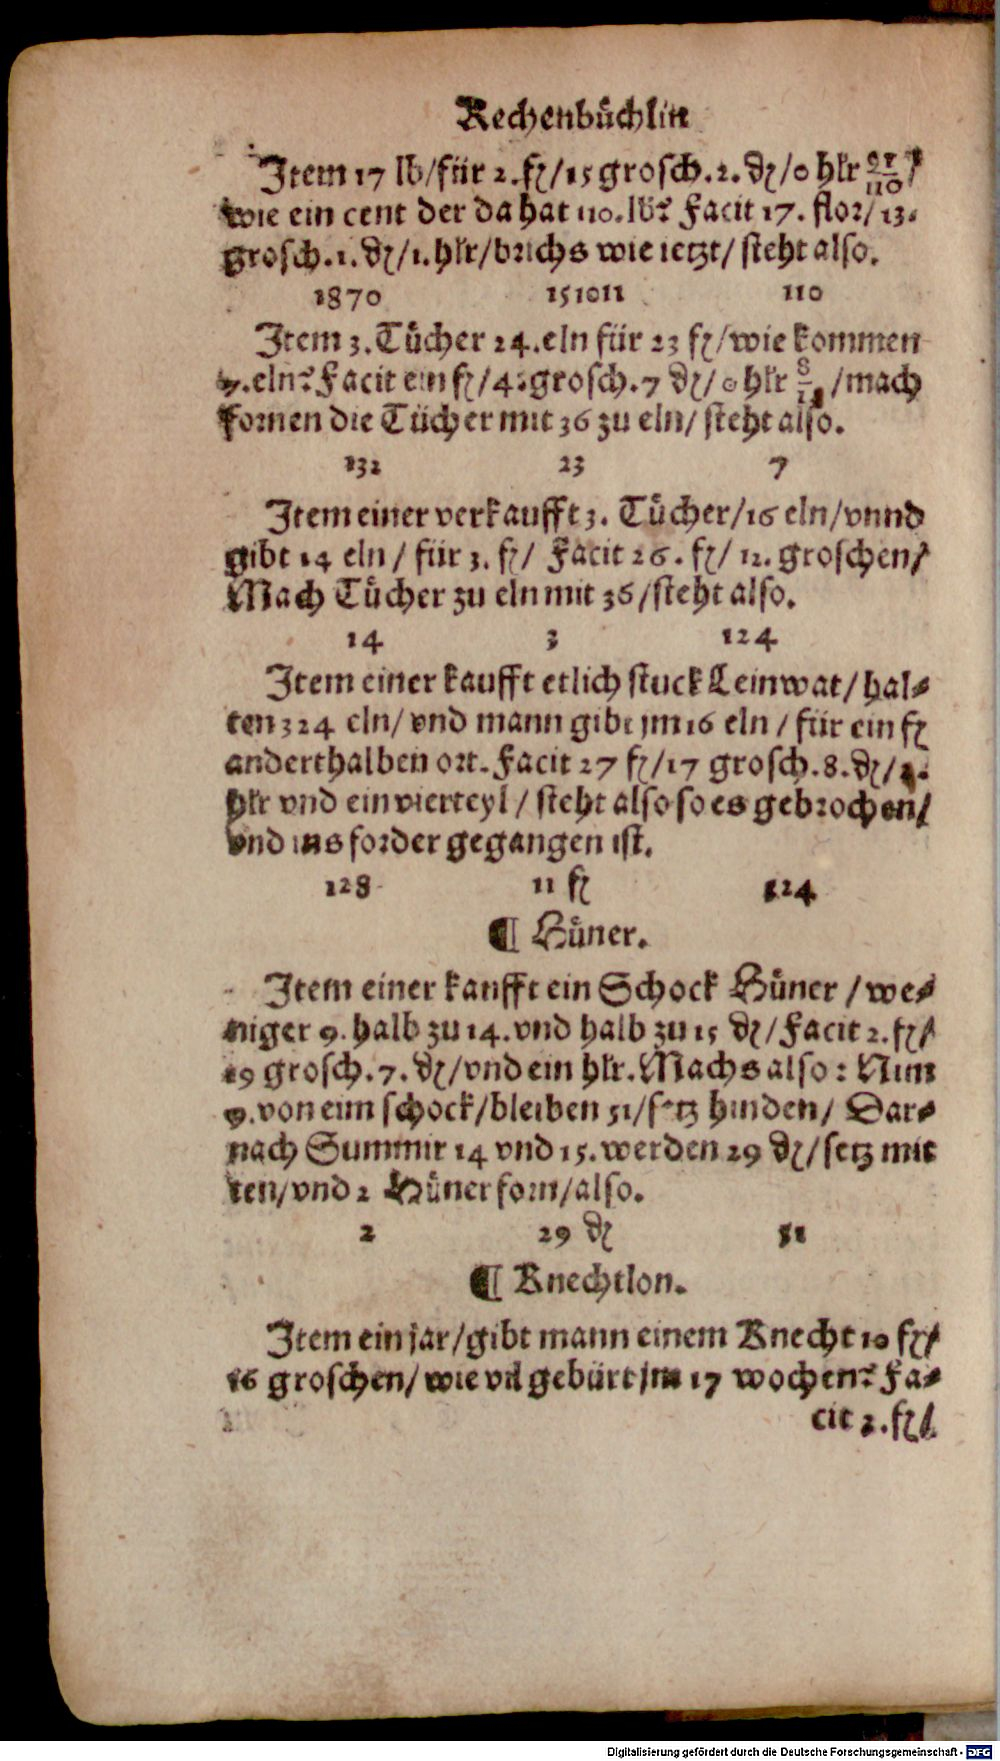 Rechenbuͤchlin
Item 17 lb/für 2.fl/15 grosch.2.d/0 hlr 91/110/
wie ein cent der da hat 110.lb? Facit 17. flor/13.
grosch.1.d/1.hlr/brichs wie ietzt/ steht also.
1870 151011 110
Item 3.Tuͤcher 24.eln für 23 fl/wie kommen
7.eln? Facit ein fl/4.grosch.7 d/0 hlr 8/11/mach
fornen die Tücher mit 36 zu eln/ steht also.
132 23 7
Item einer verkaufft 3. Tuͤcher/16 eln/vnnd
gibt 14 eln/ für 3. fl/ Facit 26. fl/ 12. groschen/
Mach Tuͤcher zu eln mit 36/steht also.
14 3 124
Item einer kaufft etlich stuck Leinwat/ hal⸗
ten 324 eln/ vnd mann gibt jm 16 eln/ für ein fl
anderthalben ort. Facit 27 fl/17 grosch.8.d/1.
hlr vnd ein vierteyl/ steht also so es gebrochen/
vnd ins forder gegangen ist.
128 11 fl 324
¶ Huͤner.
Item einer kaufft ein Schock Huͤner/we⸗
niger 9. halb zu 14.vnd halb zu 15 d/Facit 2.fl/
19 grosch.7.d/vnd ein hlr.Machs also: Nim
9.von eim schock/bleiben 51/setz hinden/ Dar⸗
nach Summir 14 vnd 15.werden 29 d/setz mit
ten/vnd 2 Huͤner forn/also.
2 29 d 51
¶ Knechtlon.
Item ein jar/gibt mann einem Knecht 10 fl/
16 groschen/ wie vil gebürt jm 17 wochen? Fa⸗
cit 3.fl/
Digitalisierung gefördert durch die Deutsche Forschungsgemeinschaft - DFG